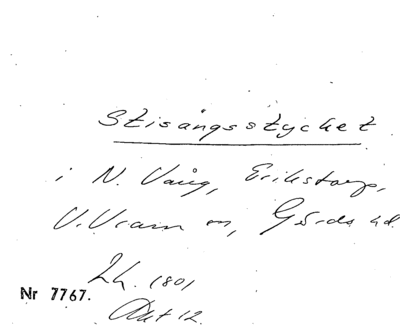 Stisångsstycket
i N. Vång, Erikstorp,
V. Vram sn, Gärds hd.
Lh. 1801
Nr 7767.
Akt 12.